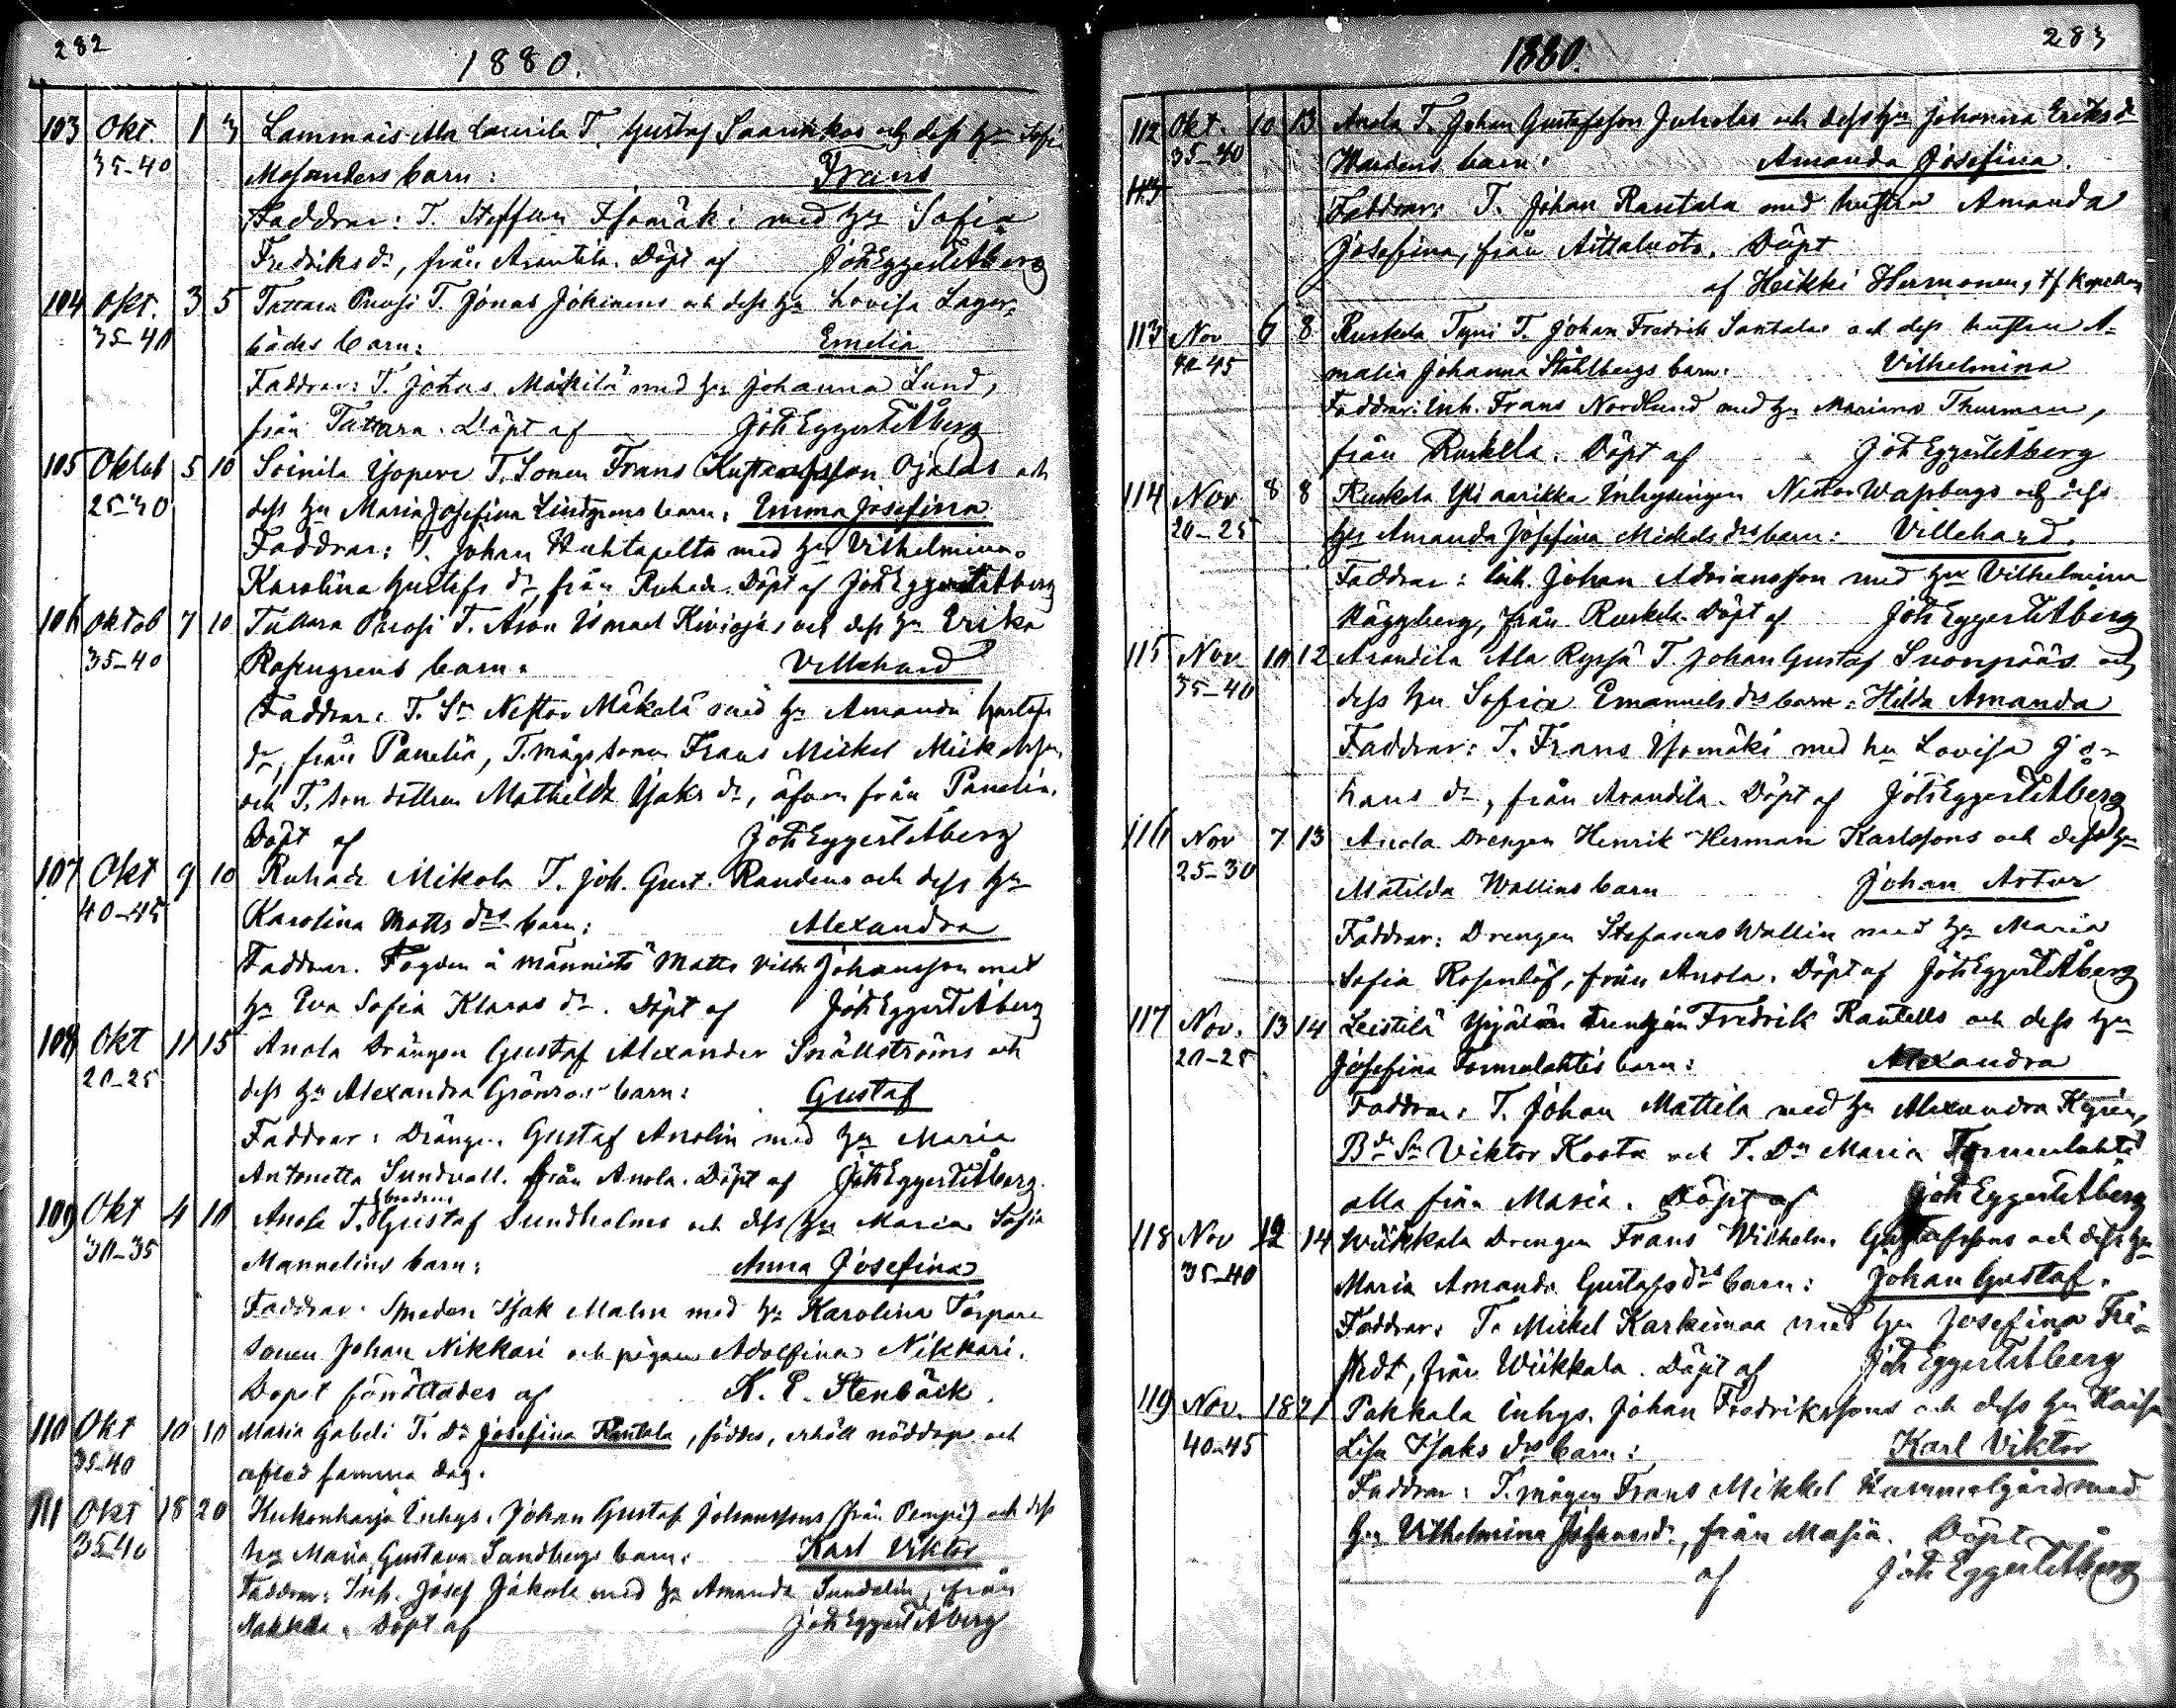 282
1880.
103 Okt. 1 3 Lammais Ala Laurila T. Gustaf Saarikkos och dess hu Sofia
35-40 Mosanders barn: Frans
Faddrar: T. Steffan Isomäki med hu Sofia
Fredriks dr, från Arantila. Döpt af Joh Eggert Åberg
104 Okt. 3 5 Tattara Prusi T. Jonas Jokinens och dess hu Lovisa Lager-
35-40 bäcks barn: Emelia
Faddrar: T. Johas Mäkilä med hu Johanna Lund,
från Tattara. Döpt af Joh Eggert Åberg
105 Oktob 5 10 Soinila Yopere T. Sonen Frans Ojalas och
25-30 dess hu Maria Josefina Lindgrens barn: Emma Josefina
Faddrar: T. Johan Huhtapelto med hu Vilhelmina
Karolina Gustafs dr, från Ruhade. Döpt af Joh Eggert Åberg
106 Oktob 7 10 Tattara Prusi T. Aron Ismael Kiviojas och dess hu Erika
35-40 Rosengrens barn: Villehard
Faddrar: T. Sn Nestor Mäkelä med hu Amanda Gustafs
dr, från Panelia, T. mågs sonen Frans Mickel Mickelsson,
och T. son dottren Mathilda Isaks dr, äfven från Panelia.
Döpt af Joh Eggert Åberg
107 Okt 9 10 Ruhade Mikola T. Joh. Gust. Randens och dess hu
40-45 Karolina Matts drs barn: Alexandra
Faddrar. Fogden å Männistö Matts Vilh. Johansson med
hu Eva Sofia Klaras dr. Döpt af Joh Eggert Åberg
108 Okt 11 15 Anola Drängen Gustaf Alexander Snällströms och
20-25 dess hu Alexandra Grönroos barn: Gustaf
Faddrar: Drängen Gustaf Anolin med hu Maria
Antonetta Sundvall. från Anola. Döpt af Joh Eggert Åberg.
109 Okt 4 10 Anola T. Gustaf Sundholms och dess hu Maria Sofia
30-35 Mannelins barn: Anna Josefina
Faddrar. Smeden Isak Malm med hu Karolina Torpare
sonen Johan Nikkari och pigan Adolfina Nikkari.
Dopet förrättades af K. E. Stenbäck.
110 Okt 10 10 Masia Gabeli T. Dr Josefina Rantala, föddes, erhöll nöddop och
35-40 afled samma dag.
111 Okt 18 20 Kukonharja Inhys. Johan Gustaf Johanssons (från Pempi) och dess
35-40 hu Maria Gustava Sandbergs barn: Karl Viktor
Faddrar: Inh. Josef Jakola med hu Amanda Sundelin, från
Makkala. Döpt af Joh Eggert Åberg
283
1880.
112 Okt. 10 13 Anola T. Johan Gustafsson Juholas och dess hu Johanna Eriks dr
35-40 Wardens barn: Amanda Josefina.
113
Faddrar: T. Johan Rantala med hustru Amanda
Josefina, från Aittaluoto. Döpt
af Heikki Hermonen, tf kapellan
113 Nov 6 8 Ruskela Tyni T. Johan Fredrik Santalas och dess hustru A-
40-45 malia Johanna Ståhlbergs barn: Vilhelmina
Faddrar: Inh. Frans Nordlund med hu Mariana Thurman,
från Ruskela. Döpt af Joh Eggert Åberg
114 Nov 8 8 Ruskela Yli aarikka Inhysingen Nestor Wassbergs och dess
20-25 hu Amanda Josefina Mickels drs barn: Villehard.
Faddrar: Inh. Johan Adriansson med hu Vilhelmina
Häggberg, från Ruskela. Döpt af Joh Eggert Åberg
115 Nov 10 12 Arandila Ala Ryssä T. Johan Gustaf Suonpääs och
35-40 dess hu Sofia Emanuels drs barn: Hilda Amanda
Faddrar: T. Frans Isomäki med hu Lovisa Jo-
hans dr, från Arandila. Döpt af Joh Eggert Åberg
116 Nov 7 13 Anola Drengen Henrik Herman Karlssons och dess hu
25-30 Matilda Wallins barn Johan Artur
Faddrar: Drengen Stefanus Wallin med hu Maria
Sofia Rosenlöf, från Anola. Döpt af Joh Eggert Åberg
117 Nov. 13 14 Leistilä drengen Fredrik Rantells och dess hu
20-25 Josefina Tommelahtis barn: Alexandra
Faddrar: T. Johan Mattila med hu Alexandra Kyrén,
Bde Sn Viktor Koota och T. Dn Maria Tommelahti
alla från Masia. Döpt af Joh Eggert Åberg
118 Nov 12 14 Wiikkala Drengen Frans Wilhelm Gustafssons och dess hu
35-40 Maria Amanda Gustafs drs barn: Johan Gustaf.
Faddrar: T. Mickel Karkimaa med hu Josefina Fri-
stedt, från Wiikkala. Döpt af Joh Eggert Åberg
119 Nov. 18 21 Pakkala Inhys. Johan Fredrikssons och dess hu Kaisa
40-45 Lisa Isaks drs barn: Karl Viktor
Faddrar: T. mågen Frans Mikkel Kammelgård med
hu Vilhelmina dr, från Masia. Döpt
af Joh Eggert Åberg